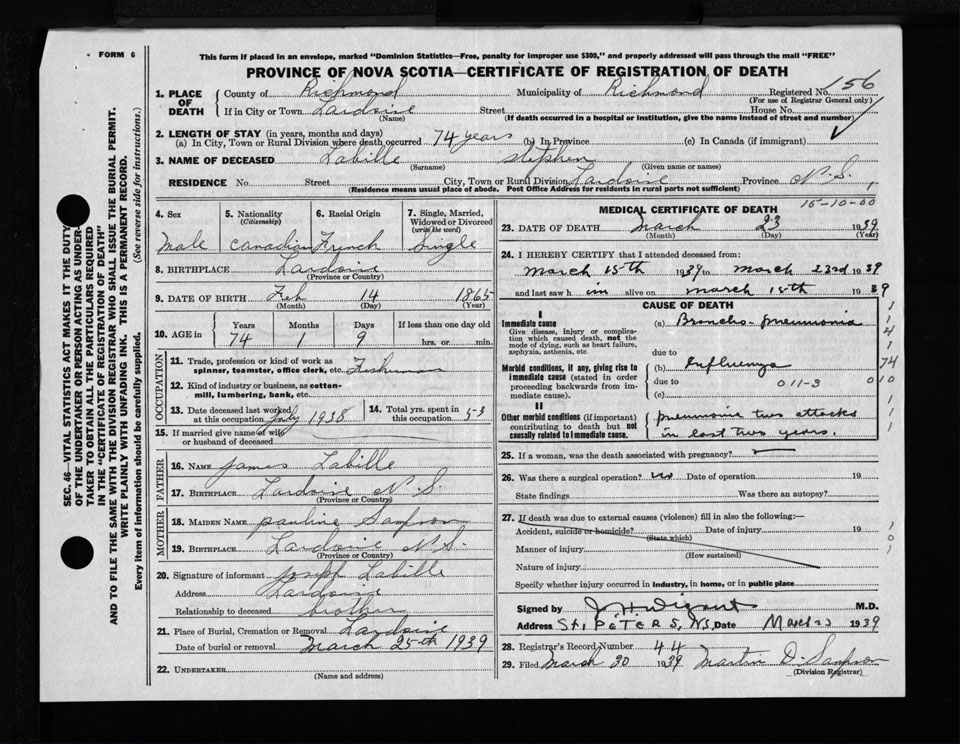 FORM 6
This form if placed in an envelope, marked "Dominion Statistics—Free, penalty for improper use $300," and properly addressed will pass through the mail "FREE"
PROVINCE OF NOVA SCOTIA—CERTIFICATE OF REGISTRATION OF DEATH
SEC. 46—VITAL STATISTICS ACT MAKES IT THE DUTY
OF THE UNDERTAKER OR PERSON ACTING AS UNDER-
TAKER TO OBTAIN ALL THE PARTICULARS REQUIRED
IN THE "CERTIFICATE OF REGISTRATION OF DEATH"
AND TO FILE THE SAME WITH THE DIVISION REGISTRAR WHO SHALL ISSUE THE BURIAL PERMIT.
WRITE PLAINLY WITH UNFADING INK. THIS IS A PERMANENT RECORD.
Every item of information should be carefully supplied. (See reverse side for instructions.)
1. PLACE OF DEATH County of Richmond Municipality of Richmond Registered No. 156
(For use of Registrar General only)
If in City or Town Lardoise Street House No.
(Name) (If death occurred in a hospital or institution, give the name instead of street and number)
2. LENGTH OF STAY (in years, months and days)
(a) In City, Town or Rural Division where death occurred 74 years (b) In Province (c) In Canada (if immigrant)
3. NAME OF DECEASED Labille Stephen
(Surname) (Given name or names)
RESIDENCE No Street City, Town or Rural Division Lardoise Province N.S.
(Residence means usual place of abode. Post Office Address for residents in rural parts not sufficient)
15-10-00
4. Sex 5. Nationality (Citizenship) 6. Racial Origin 7. Single, Married, Widowed or Divorced (write the word)
Male Canadian French Single
8. BIRTHPLACE Lardoise
(Province or Country)
9. DATE OF BIRTH Feb 14 1865
(Month) (Day) (Year)
10. AGE in Years Months Days If less than one day old
74 1 9 hrs. or min.
OCCUPATION
11. Trade, profession or kind of work as
spinner, teamster, office clerk, etc. Fisherman
12. Kind of industry or business, as cotton-
mill, lumbering, bank, etc.
13. Date deceased last worked at this occupation July 1938 14. Total yrs. spent in this occupation 53
15. If married give name of wife
or husband of deceased
FATHER
16. NAME James Labille
17. BIRTHPLACE Lardoise N.S.
(Province or Country)
MOTHER
18. MAIDEN NAME Pauline Sampson
19. BIRTHPLACE Lardoise N.S.
(Province or Country)
20. Signature of informant Joseph Labille
Address Lardoise
Relationship to deceased brother
21. Place of Burial, Cremation or Removal Lardoise
Date of burial or removal March 25th 1939
22. UNDERTAKER
(Name and address)
MEDICAL CERTIFICATE OF DEATH
23. DATE OF DEATH March 23 1939
(Month) (Day) (Year)
24. I HEREBY CERTIFY that I attended deceased from:
March 15th 1939 to March 23rd 1939
and last saw h im alive on March 15th 1939
CAUSE OF DEATH
I
Immediate cause (a) Broncho-pneumonia
Give disease, injury or complica-
tion which caused death, not the
mode of dying, such as heart failure,
asphyxia, asthenia, etc.
due to
Morbid conditions, if any, giving rise to (b) Influenza 74
immediate cause (stated in order due to 011-3 010
proceeding backwards from im-
mediate cause). (c)
II
Other morbid conditions (if important) pneumonia two attacks
contributing to death but not in last two years.
causally related to immediate cause.
25. If a woman, was the death associated with pregnancy?
26. Was there a surgical operation? no Date of operation 19
State findings Was there an autopsy?
27. If death was due to external causes (violence) fill in also the following:—
Accident, suicide or homicide? Date of injury 19
(State which)
Manner of injury
(How sustained)
Nature of injury
Specify whether injury occurred in industry, in home, or in public place
Signed by M.D.
Address St. PETERS, N.S. Date March 1939
28. Registrar's Record Number 44
29. Filed March 30 1939 Martin D. Sampson
(Division Registrar)